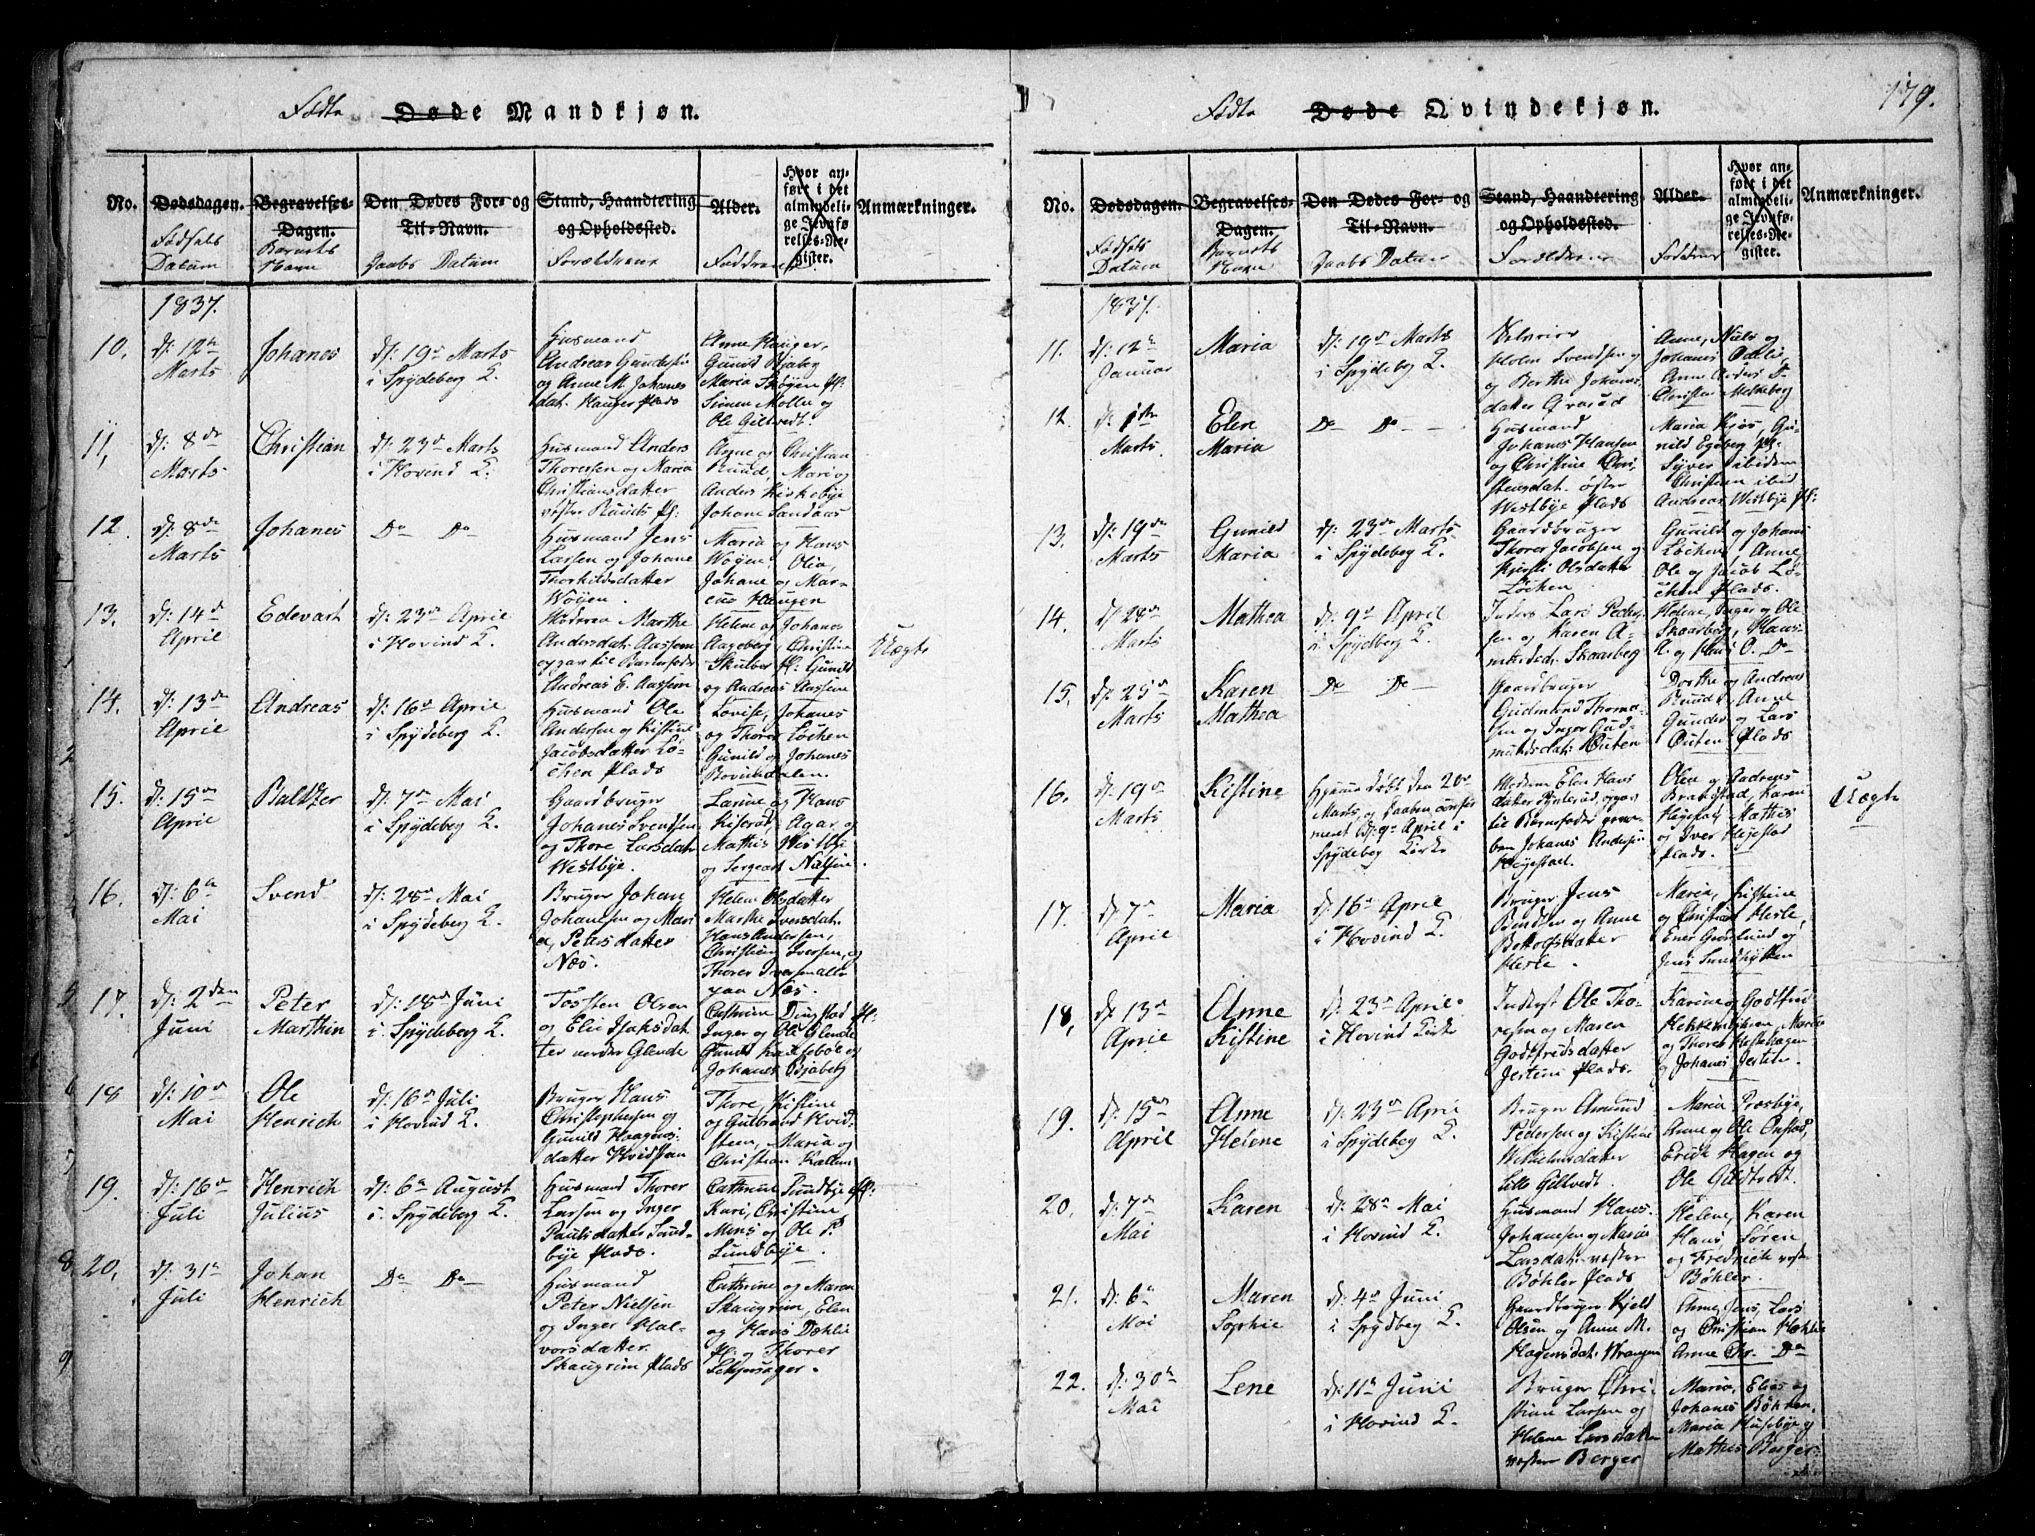 179.
Fødte Døde Mandkjøn.
No.
Dødsdagen.
Fødsels
Datum
Begravelses-
Dagen.
Barnets
Navn
Den Dødes For- og
Til-Navn.
Daabs Datum
Stand, Haandtering
og Opholdssted.
Forældrene
Alder.
Faddrene
Hvor an-
ført i det
almindeli-
ge Jevnfø-
relses-Re-
gister.
Anmærkninger.
1837.
10.
d: 12te
Marts
Johanes
d: 19de Marts
i Spydeberg K.
Husmand
Andreas Gundersen
og Anne M. Johanes
dat. Hauger Plads
Anne Hauger,
Gunild Bjaberg
Maria Skøjen Pl:
Simen Molle og
Ole Gillvedt.
11,
d: 8de
Marts
Christian
d: 23de Marts
i Hovind K.
Husmand Anders
Thoresen og Maria
Christiansdatter
vestre Ruuds Pl:
Anne og Christian
Ruud, Mari og
Anders Kirkebye
Johane Sandaas
12.
d: 8de
Marts
Johanes
Do Do
Husmand Jens
Larsen og Johane
Thorkildsdatter
Wøyen.
Maria og Hans
Wøyen, Olia,
Johane og Mar-
cus Haugen
13.
d: 14de
April
Edevart
d: 23de April
i Hovind K.
Moderen Marthe
Andersdat. Aassem
opgav til Barnefader
Andreas E. Aassem
Helene og Johanes
Aageberg, Christine
Skulber Pl: Gunild
og Andreas Aassem
Uægte
14.
d: 13de
April
Andreas
d: 16de April
i Spydeberg K.
Husmand Ole
Andersen og Kistine
Jacobsdatter Lø-
chen Plads
Lovise, Johanes
og Thorer Løchen
Gunild og Johanes
Bovimdalen.
15.
d: 15de
April
Baltzer
d: 7de Mai
i Spydeberg K.
Gaardbruger
Johanes Svendsen
og Thore Larsdat.
Westbye.
Larine og Hans
Kiserød, Agar og
Mathis Westbye
og Sergeant Nielsen
16.
d: 6te
Mai
Svend
d: 28de Mai
i Spydeberg K.
Bruger Johan
Johansen og Mari
a, Petersdatter
Næs.
Helene Olsdatter
Marthe Iversdat.
Hans Andersen,
Christian Iversen, og
Thorer Iversen alle
paa Næs.
17.
d: 2den
Juni
Peter
Marthin
d: 18de Juni
i Spydeberg K.
Tosten Olsen
og Elie Isaksdat
ter nordre Glende
Cathrine Dingstad Pl:
Inger og Ole Glende
Gunild
Johanes Bjaberg
18
d: 10de
Mai
Ole
Henrich
d: 16de Juli
i Hovind K.
Bruger Hans
Christophersen og
Gunild Haagens-
datter Hvidsteen
Thore, Kistine
og Gulbrand Hvid
steen, Maria og
Christian Kallem
19.
d: 16de
Juli
Henrich
Julius
d: 6te August
i Spydeberg K.
Husmand Thorer
Larsen og Inger
Paulsdatter Lund-
bye Plads.
Cathrine Lundbye Pl:
Kari, Christine
Mons og Ole P.
Lundbye.
20,
d: 31te
Juli
Johan
Henrich
Do Do
Husmand
Peter Nielsen
og Inger Hal-
vorsdatter
Skaugrim Plads
Cathrine og Maren
Skaugrim, Elen
og Hans Dæhlie
Pl: og Thorer
Fødte Døde Qvindekjøn.
No.
Dødsdagen.
Fødsels
Datum
Begravelses-
Dagen.
Barnets
Navn
Den Dødes For- og
Til-Navn.
Daabs Datum
Stand, Haandtering
og Opholdssted.
Forældrene
Alder.
Faddrene
Hvor an-
ført i det
almindeli-
ge Jevnfø-
relses-Re-
gister.
Anmærkninger.
1837.
11.
d: 12te
Januar
Maria
d: 19de Marts
i Spydeberg K.
Holm Svendsen og
og Berthe Johanes-
datter
Anne, Niels og
Johanes
Anne Anders D-
Christen Melleberg
12.
d: 1ste
Marts
Elen
Maria
Do Do
Husmand
Johans Hansen
og Christine Chri-
stensdat. østre
Westbye Plads
Maria Kjos, Gu-
nild Egeberg Pl:
Syver ibidem
Christian ibid
Andreas Westbye Pl:
13.
d: 19de
Marts
Gunild
Maria
d: 23de Marts
i Spydeberg K.
Gaardbruger
Thorer Jacobsen og
Kjersti Olsdatter
Løchen
Gunild og Johans
Løchen, Anne,
Ole og Jacob Lø-
chen Plads.
14.
d: 28de
Marts
Mathea
d: 9de April
i Spydeberg K.
Inders Lars Peder-
sen og Karen A-
Skaarberg
Helene, Inger og Ole
Skaarberg, Hans
A. og Hans O. Do
15,
d: 25de
Marts
Karen
Mathea
Do Do
Gaardbruger
Gudmund Thoma-
sen og Inger Gud-
mundsdat. Outen
Dorthe og Andreas
Ruud, Anne
Gunder og Lars
Outen Plads
16.
d: 19de
Marts
Kistine
Hjemmedøbt den 20de
Marts, og Daaben confir
meret d: 9de April i
Spydeberg Kirke
Moderen Elen Hans
datter opgav
til Barnefader
Johanes Andersen
Heyestad.
Olea og Andreas
Brabestad, Karen
Heyestad, Mathis
og Iver Heyestad
Plads.
Uægte
17.
d: 7de
April
Maria
d: 16de April
i Hovind K.
Bruger Jens
Bendsen og Anne
Botolfsdatter
Herle.
Maria, Kistine
og Christian Herle,
Ener Granlund og
Jens Smedhytten
18,
d: 13de
April
Anne
Kistine
d: 23de April
i Hovind Kirke
Inderst Ole Tho-
resen og Maren
Godtfredsdatter
Jerten Plads.
Karine og Godtfred
Hekkemyhren, Maria
og Thores Hestehagen
og Johanes Jerten.
19.
d: 15de
April
Anne
Helene
d: 23de Apri
i Spydeberg K.
Bruger Amund
Pedersen og Kistine
Wilhelmsdatter
Lille Gillvedt.
Maria Præsbye,
Anne og Ole Onstad,
Erick Hagen og
Ole Gillvedt.
20.
d: 7de
Mai
Karen
d: 28de Mai
i Hovind K.
Husmand Hans
Johansen og Maria
Larsdatter vestre
Bøhler Plads
Helene, Karen
Hans Søren
og Fredrick vestre
Bøhler.
21.
d: 6te
Mai
Maren
Sophie
d: 4de Juni
i Spydberg K.
Gaardbruger Kjeld
Olsen og Anne M.
Hagensdat. Wrangen
Anne, Jens, Lars
og Christian Hæhlie
Anne Chr. Do
22.
d: 30te
Mai
Lene
d: 11te Juni
i Hovind K.
Bruger Chri-
stian Larsen og
Helene Larsdatter
vestre Berger
Maria, Elias og
Johanes Bøhren.
Maria Husebye og
Mathis Berger